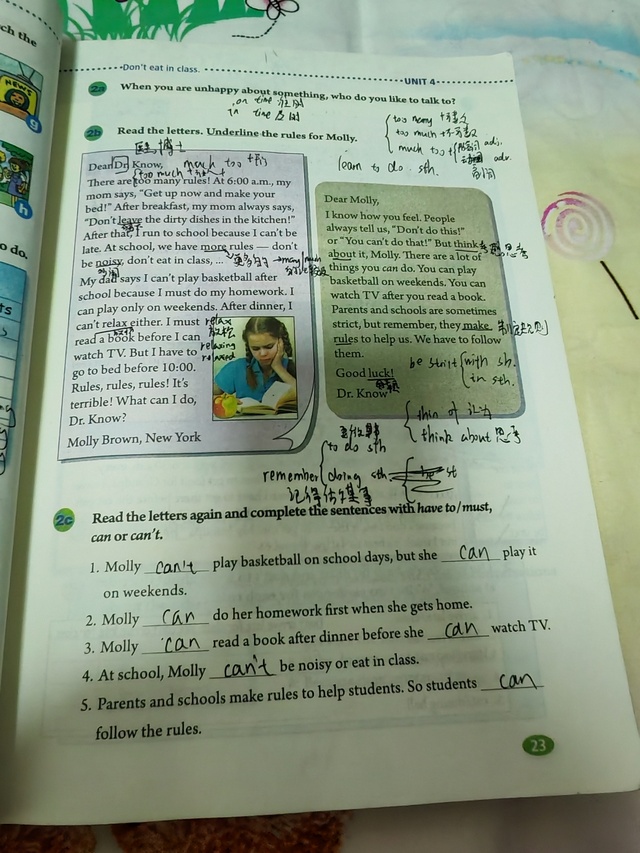 ch the
NEWS
g
h
o do.
ts
Don't eat in class.
UNIT 4
2a When you are unhappy about something, who do you like to talk to?
on time 准时
in time 及时
2b Read the letters. Underline the rules for Molly.
too many +可数
too much +不可数
much too + adj.
adv.
learn to do sth.
博士
much too +
too much +
Dear Dr. Know,
There are too many rules! At 6:00 a.m., my
mom says, "Get up now and make your
bed!" After breakfast, my mom always says,
"Don't leave the dirty dishes in the kitchen!"
After that, I run to school because I can't be
late. At school, we have more rules — don't
be noisy, don't eat in class, ...
更多的 → many/much
My dad says I can't play basketball after
school because I must do my homework. I
can play only on weekends. After dinner, I
can't relax either. I must
read a book before I can
watch TV. But I have to
go to bed before 10:00.
Rules, rules, rules! It's
terrible! What can I do,
Dr. Know?
Molly Brown, New York
relax
放松
relaxing
relaxed
Dear Molly,
I know how you feel. People
always tell us, "Don't do this!"
or "You can't do that!" But think
about it, Molly. There are a lot of
things you can do. You can play
basketball on weekends. You can
watch TV after you read a book.
Parents and schools are sometimes
strict, but remember, they make
rules to help us. We have to follow
them.
Good luck!
Dr. Know
思考
be strict with sb.
in sth.
thin of 认为
think about 思考
remember
to do sth
doing sth
记得做过某事
2c Read the letters again and complete the sentences with have to/must,
can or can't.
1. Molly can't play basketball on school days, but she can play it
on weekends.
2. Molly can do her homework first when she gets home.
3. Molly can read a book after dinner before she can watch TV.
4. At school, Molly can't be noisy or eat in class.
5. Parents and schools make rules to help students. So students can
follow the rules.
23